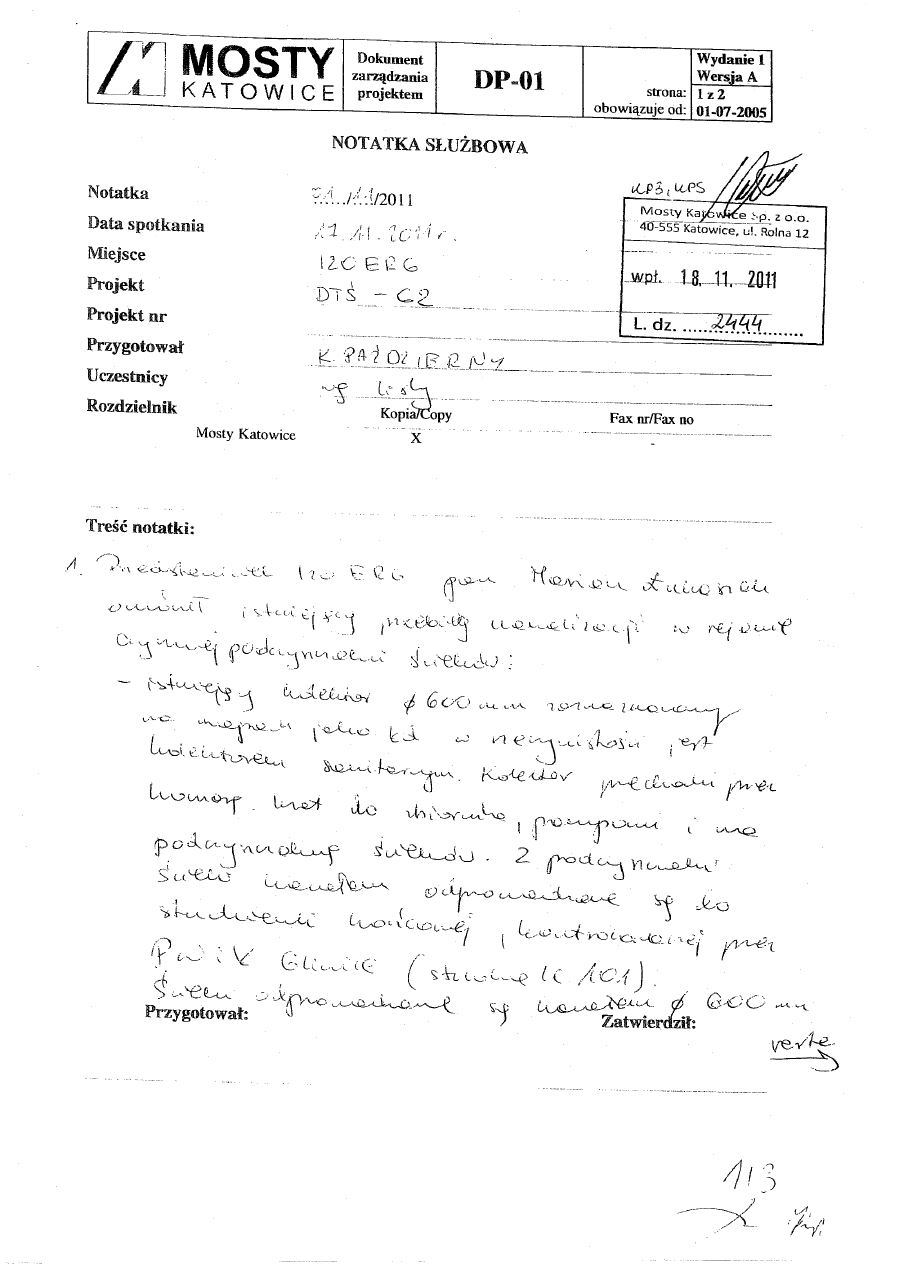 MOSTY
KATOWICE
Dokument
zarządzania
projektem
DP-01
Wydanie 1
Wersja A
strona: 1 z 2
obowiązuje od: 01-07-2005
NOTATKA SŁUŻBOWA
UP3, UPS
Mosty Katowice Sp. z o.o.
40-555 Katowice, ul. Rolna 12
wpł. 18. 11. 2011
L. dz. 2444
Notatka /11/2011
Data spotkania 17.11.2011r.
Miejsce IZO ERG
Projekt DTŚ - G2
Projekt nr
Przygotował K. PAŹDZIERNY
Uczestnicy wg listy
Rozdzielnik Kopia/Copy Fax nr/Fax no
Mosty Katowice X -
Treść notatki:
1. Przedstawiciel IZO ERG pan Marian
omówił istniejący przebieg kanalizacji w rejonie
czynnej podczyszczalni ścieków:
- istniejący kolektor ϕ 600 mm zaznaczony
na mapach jako kd w rzeczywistości jest
kolektorem sanitarnym. Kolektor przechodzi przez
komorę krat do zbiornika, pompowni i na
podczyszczalnię ścieków. Z podczyszczalni
ścieki kanałem odprowadzane są do
studzienki końcowej, kontrolowanej przez
PWiK Gliwice (studnia K 101).
Ścieki odprowadzane są kanałem ϕ 600 mm
Przygotował: Zatwierdził:
verte
113